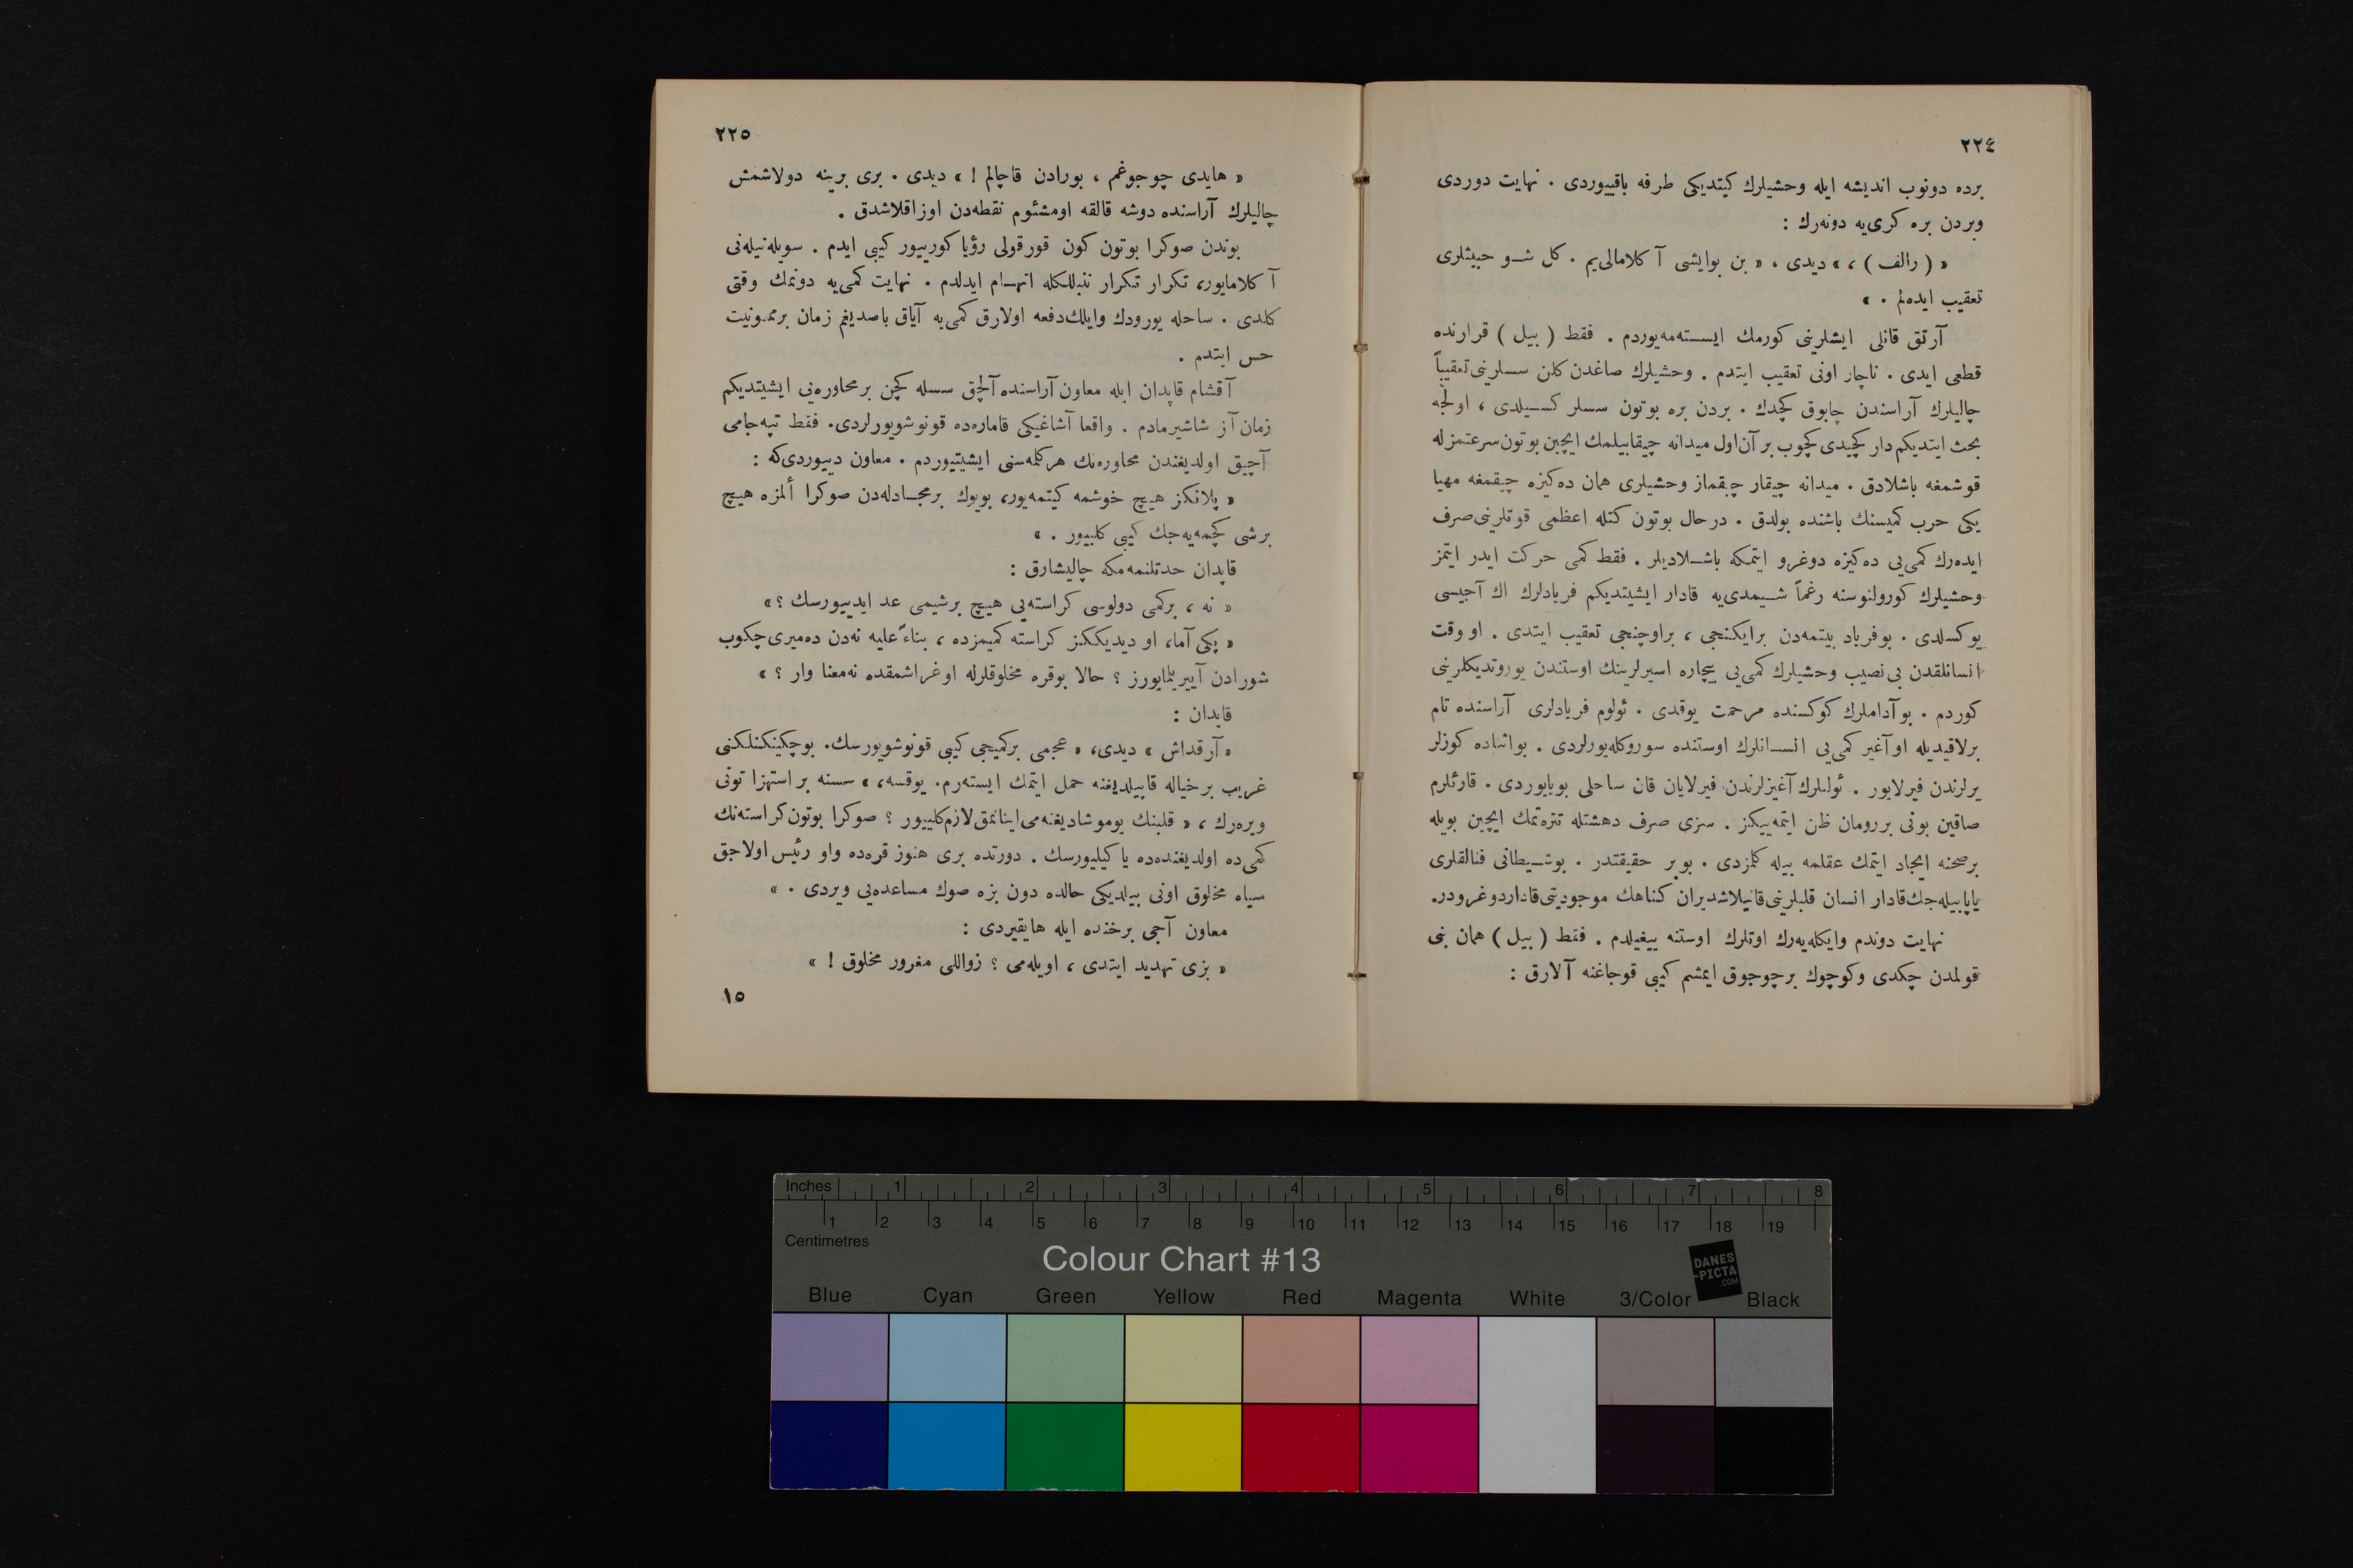 ٢٢٤
برده دونوب اندیشه ایله وحشیلرك كیتدیكی طرفه باقییوردی . نهایت دوردی
وبردن بره كری‌یه دونه‌رك :
« ( رالف ) ، » دیدی ، « بن بوایشی آ كلامالی‌یم . كل شو حبیثلری
تعقیب ایده‌لم . »
آرتق قانلی ایشلرینی كورمك ایسته‌مه‌یوردم . فقط ( بیل ) قرارنده
قطعی ایدی . ناچار اونی تعقیب ایتدم . وحشیلرك صاغدن كلن سسلرینی تعقیباً
چالیلرك آراسندن چابوق كچدك . بردن بره بوتون سسلر كسیلدی ، اولجه
بحث ایتدیكم دار كچیدی كچوب بر آن اول میدانه چیقابیلمك ایچین بوتون سرعتمزله
قوشمغه باشلادق . میدانه چیقار چیقماز وحشیلری همان ده‌كیزه چیقمغه مهیا
یكی حرب كمیسنك باشنده بولدق . درحال بوتون كتله اعظمی قوتلرینی صرف
ایده‌رك كمی‌یی ده‌كیزه دوغرو ایتمكه باشلادیلر . فقط كمی حركت ایدر ایتمز
وحشیلرك كورولتوسنه رغماً شیمدی‌یه قادار ایشیتدیكم فریادلرك اك آجیسی
یوكسلدی . بوفریاد بیتمه‌دن برایكنجی ، براوچنجی تعقیب ایتدی . او وقت
انسانلقدن بی نصیب وحشیلرك كمی‌یی بیچاره اسیرلرینك اوستندن یوروتدیكلرینی
كوردم . بو آداملرك كوكسنده مرحمت یوقدی . ئولوم فریادلری آراسنده تام
برلاقیدیله او آغیر كمی‌یی انسانلرك اوستنده سوروكله‌یورلردی . بواثناده كوزلر
یرلرندن فیرلایور . ئولنلرك آغیزلرندن فیرلایان قان ساحلی بویایوردی . قارئلرم
صاقین بونی بررومان ظن ایتمه‌ییكز . سزی صرف دهشتله تتره‌تمك ایچین بویله
برصحنه ایجاد ایتمك عقلمه بیله كلمزدی . بو بر حقیقتدر . بوشیطانی فنالقلری
یاپابیله‌جك قادار انسان قلبلرینی قاتیلاشدیران كناهك موجودیتی قاداردوغرودر.
نهایت دوندم وایكله‌یه‌رك اوتلرك اوستنه ییغیلدم . فقط ( بیل ) همان بنی
قولمدن چكدی وكوچوك برچوجوق ایمشم كیبی قوجاغنه آلارق :
٢٢٥
« هایدی چوجوغم ، بورادن قاچالم ! » دیدی . بری برینه دولاشمش
چالیلرك آراسنده دوشه قالقه اومشئوم نقطه‌دن اوزاقلاشدق .
بوندن صوكرا بوتون كون قورقولی رؤیا كورییور كیبی ایدم . سویله‌نیله‌نی
آ كلامایور، تكرار تكرار تنبللكله اتهام ایدلدم . نهایت كمی‌یه دونمك وقتی
كلدی . ساحله یورودك وایلك‌دفعه اولارق كمی‌یه آیاق باصدیغم زمان برممنونیت
حس ایتدم .
آقشام قاپدان ایله معاون آراسنده آلچق سسله كچن بر محاوره‌یی ایشیتدیكم
زمان آز شاشیرمادم . واقعا آشاغیكی قاماره‌ده قونوشویورلردی. فقط تپه‌جامی
آچیق اولدیغندن محاوره‌نك هركلمه‌سنی ایشیتییوردم . معاون دییوردی‌كه :
« پلانكز هیچ خوشمه كیتمه‌یور، بویوك برمجادله‌دن صوكرا ألمزه هیچ
برشی كچمه‌یه‌جك كیبی كلییور . »
قاپدان حدتلنمه‌مكه چالیشارق :
« نه ، بركمی دولوسی كراسته‌یی هیچ برشیمی عد ایدییورسك ؟ »
« پكی آما، او دیدیككز كراسته كمیمزده ، بناءً علیه نه‌دن ده‌میری چكوب
شورادن آییریلمایورز ؟ حالا بوقره مخلوقلرله اوغراشمقده نه‌معنا وار ؟ »
قاپدان :
« آرقداش » دیدی، « عجمی بركمیجی كیبی قونوشویورسك. بوچكینكنلكنی
غریب برخیاله قاپیلدیغنه حمل ایتمك ایسته‌رم. یوقسه، » سسنه بر استهزا تونی
ویره‌رك ، « قلبنك یوموشادیغنه‌می اینانمق لازم كلییور ؟ صوكرا بوتون كراسته‌نك
كمی‌ده اولدیغنده‌ده یا كیلیورسك . دورتده بری هنوز قره‌ده واو رئیس اولاجق
سیاه مخلوق اونی بیلدیكی حالده دون بزه صوك مساعده‌یی ویردی . »
معاون آجی برخنده ایله هایقیردی :
« بزی تهدید ایتدی ، اویله‌می ؟ زواللی مغرور مخلوق ! »
١٥
Inches 1 2 3 4 5 6 7 8
1 2 3 4 5 6 7 8 9 10 11 12 13 14 15 16 17 18 19
Centimetres
Colour Chart #13
DANES
-PICTA
.COM
Blue Cyan Green Yellow Red Magenta White 3/Color Black